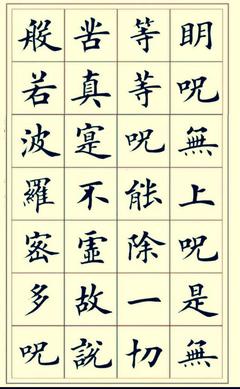 明呪無上呪是無
等等呪能除一切
苦真寔不虛故說
般若波羅密多呪